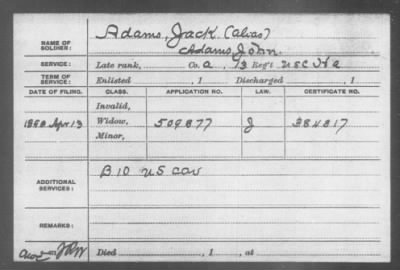 Adams, Jack (Alias)
NAME OF SOLDIER: Adams, John.
SERVICE: Late rank, Co. A, 13 Reg't U S C H A
TERM OF SERVICE: Enlisted , 1 Discharged , 1
DATE OF FILING. CLASS. APPLICATION NO. LAW. CERTIFICATE NO.
Invalid,
Apr 13 Widow, 509877 J 384817
Minor,
ADDITIONAL SERVICES: B 10 U S Cav
REMARKS:
Died , 1 , at